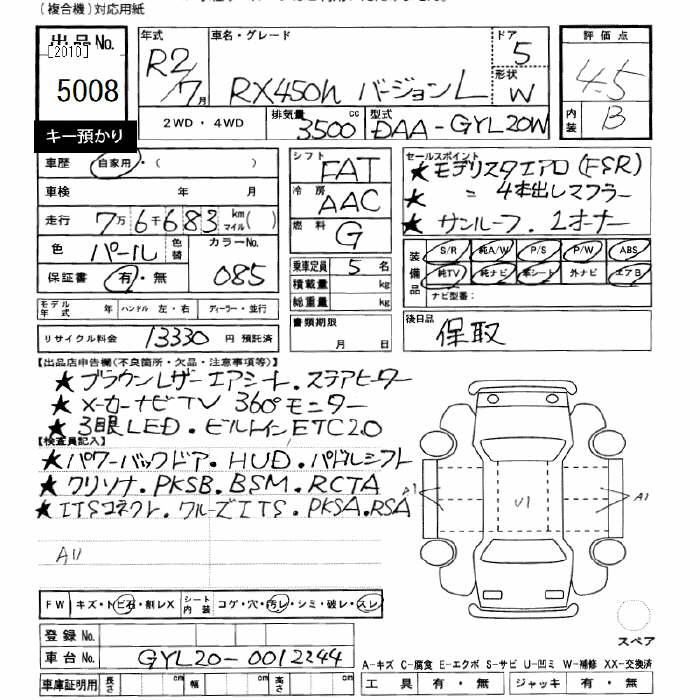 (複合機)対応用紙
出品No.
[2010]
5008
キー預かり
年式 R2/7月
車名・グレード
RX450h バージョンL
ドア 5
形状 W
評価点
4.5
内装 B
2WD・4WD
排気量 3500 cc
型式 DAA-GYL20W
車歴 自家用・( )
車検 年 月
走行 7万6千683 km マイル( )
色 パール 色替 カラーNo. 085
保証書 有・無
モデル年式 ハンドル 左・右 ディーラー・並行
リサイクル料金 13330 円 預託済
シフト FAT
冷房 AAC
燃料 G
乗車定員 5 名
積載量 kg
総重量 kg
書類期限 月 日
セールスポイント
★モデリスタエアロ(FSR)
★ 〃 4本出しマフラー
★サンルーフ.1オーナー
装備品 S/R 純A/W P/S P/W ABS
純TV 純ナビ 革シート 外ナビ エアB
ナビ型番:
後日品 保取
【出品店申告欄(不良箇所・欠品・注意事項等)】
★ブラウンレザーエアシート.ステアヒーター
★メーカーナビTV 360°モニター
★3眼LED.ビルトインETC2.0
【検査員記入】
★パワーバックドア.HUD.パドルシフト
★クリソナ.PKSB.BSM.RCTA
★ITSコネクト.クルーズITS.PKSA.RSA
A1
U1
A1
FW キズ・トビ石・割レX シート内装 コゲ・穴・汚レ・シミ・破レ・スレ
登録No.
車台No. GYL20-0012344
車庫証明用 長さ cm 幅 cm 高さ cm
スペア
A-キズ C-腐食 E-エクボ S-サビ U-凹ミ W-補修 XX-交換済
工具 有・無 ジャッキ 有・無